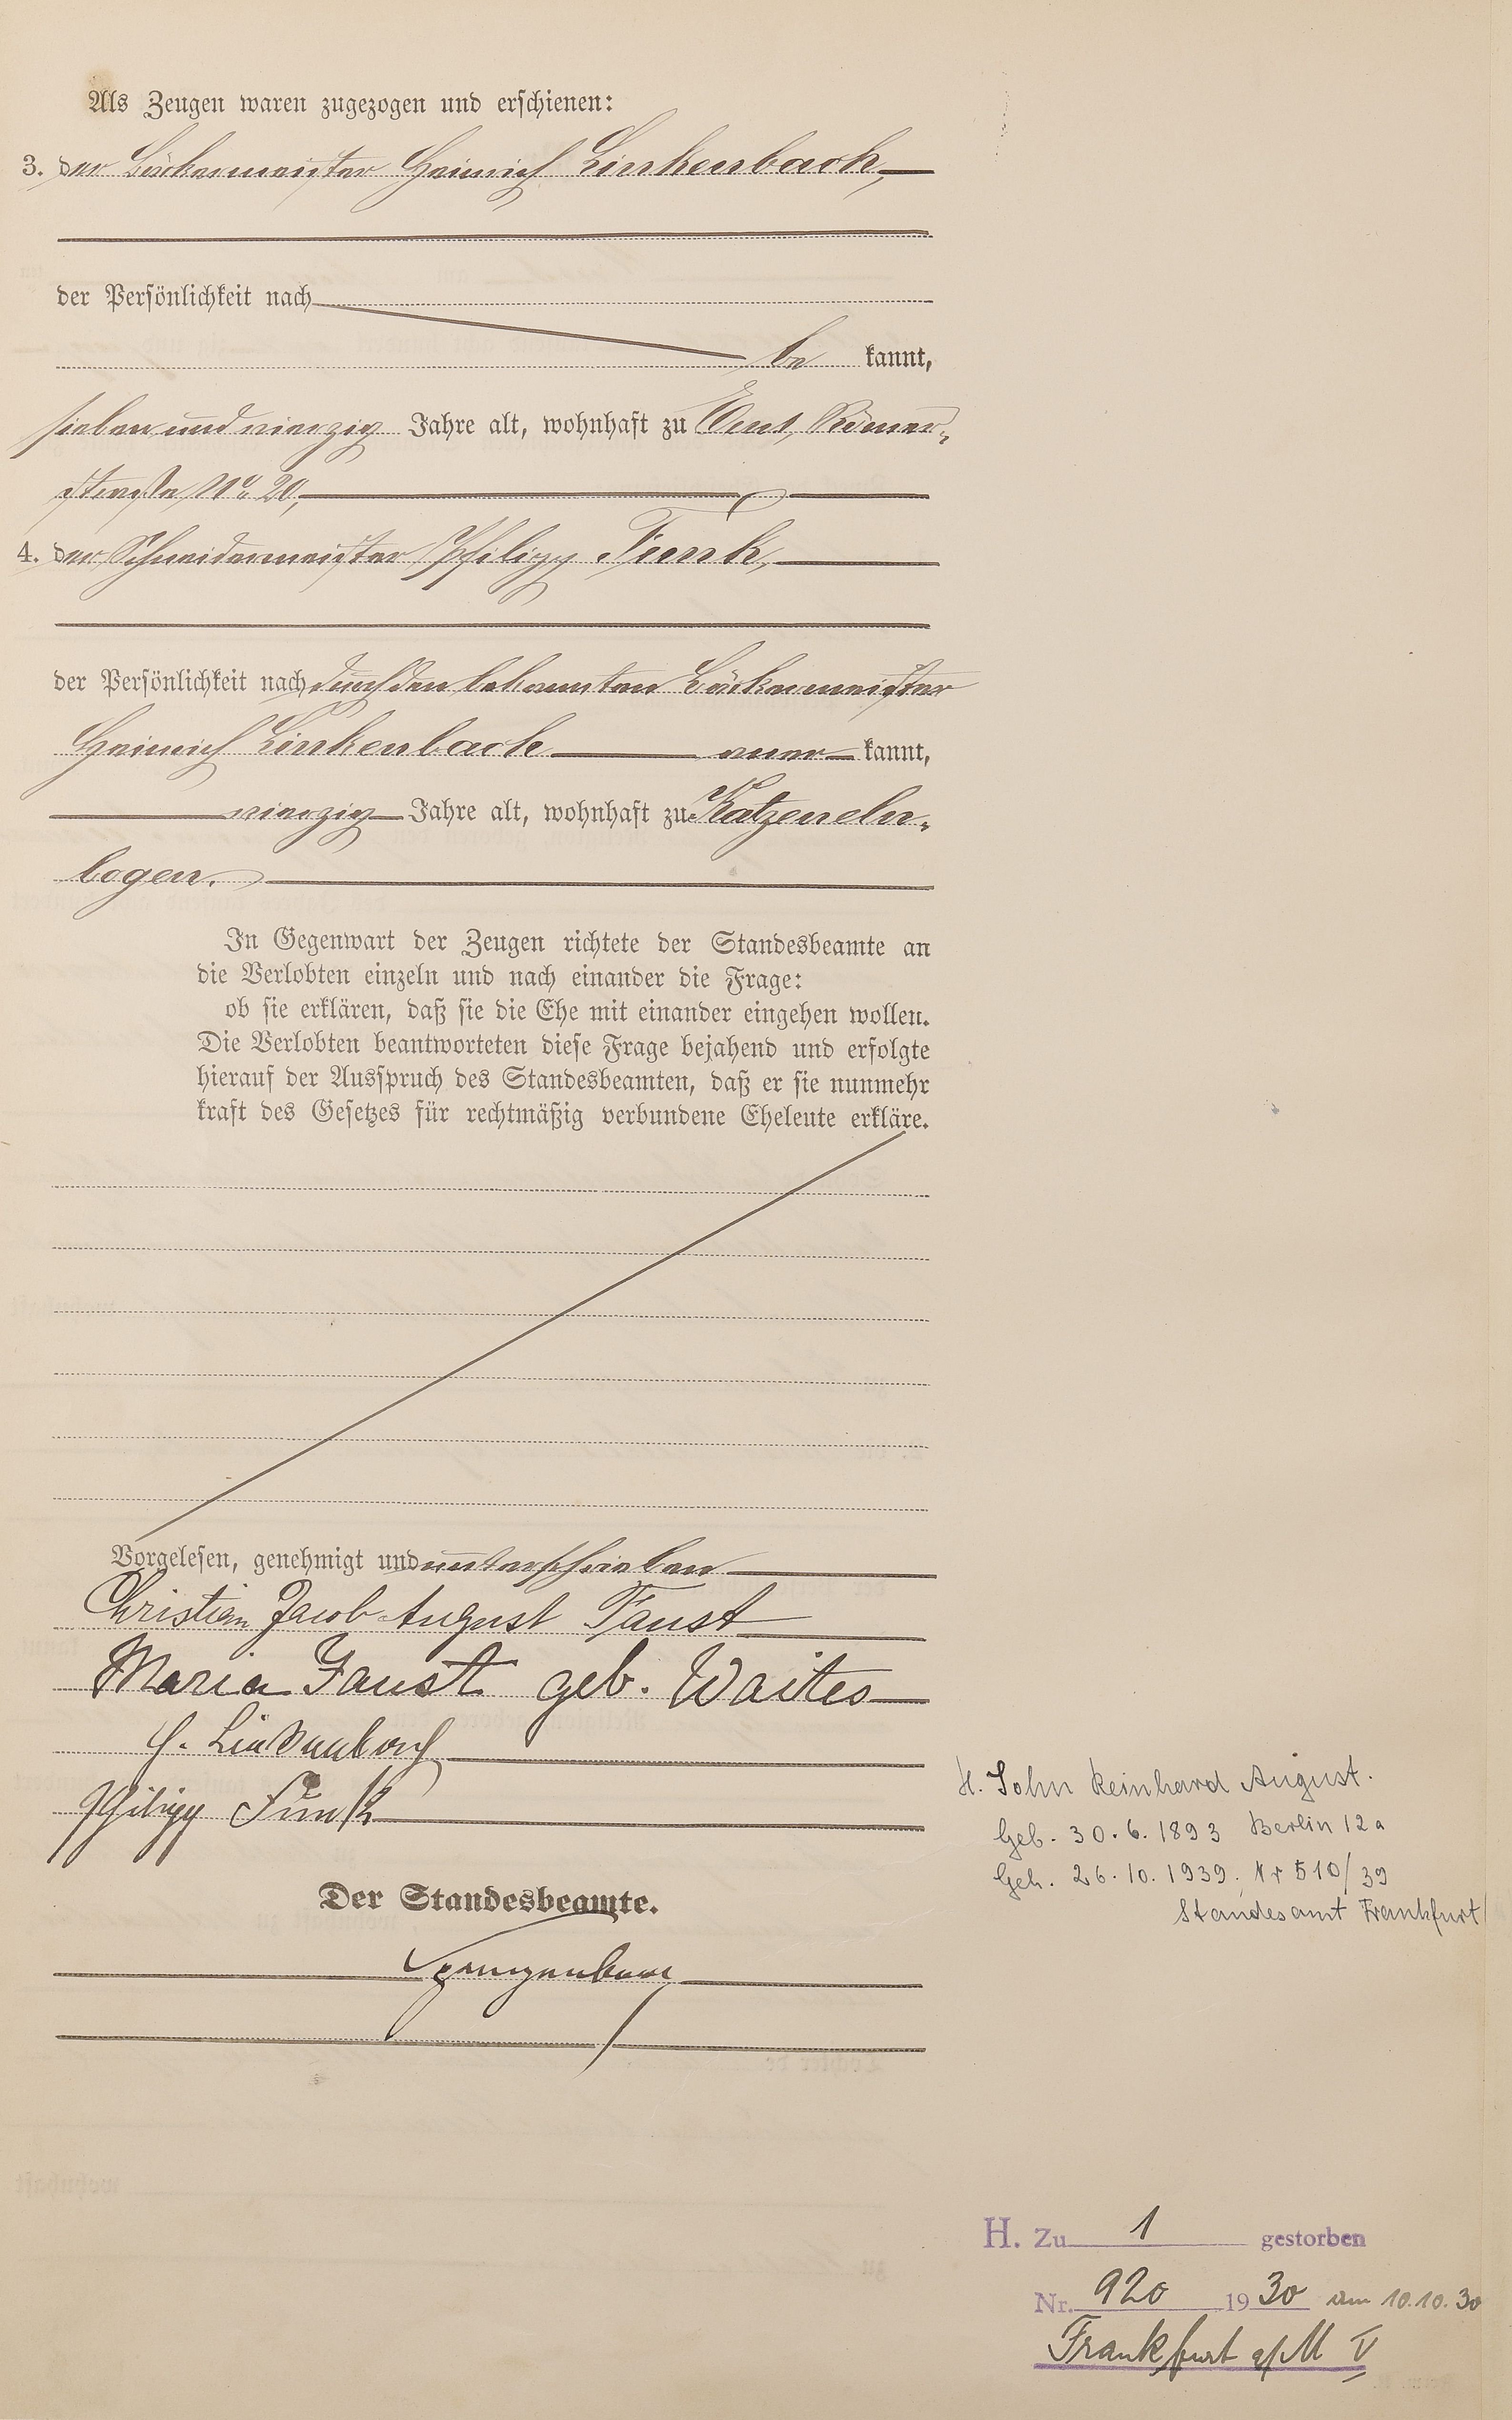 Als Zeugen waren zugezogen und erschienen:
3. der Bäckermeister Heinrich Linkenbach,
der Persönlichkeit nach
be kannt,
sieben und vierzig Jahre alt, wohnhaft zu Ems, Römer-
straße No. 20,
4. der Schneidermeister Philipp Funk,
der Persönlichkeit nach durch den bekannten Bäckermeister
Heinrich Linkenbach aner kannt,
vierzig Jahre alt, wohnhaft zu Katzeneln-
bogen.
In Gegenwart der Zeugen richtete der Standesbeamte an
die Verlobten einzeln und nach einander die Frage:
ob sie erklären, daß sie die Ehe mit einander eingehen wollen.
Die Verlobten beantworteten diese Frage bejahend und erfolgte
hierauf der Ausspruch des Standesbeamten, daß er sie nunmehr
kraft des Gesetzes für rechtmäßig verbundene Eheleute erkläre.
Vorgelesen, genehmigt und unterschrieben
Christian Jacob August Faust
Maria Faust geb. Waites
H. Linkenbach
Philipp Funk
Der Standesbeamte.
H. Sohn Reinhard August.
Geb. 30.6.1893 Berlin 12a
Geh. 26.10.1939. Nr 510/39
Standesamt Frankfurt/
H. Zu 1 gestorben
Nr. 920 1930 am 10.10.30
Frankfurt a/M V